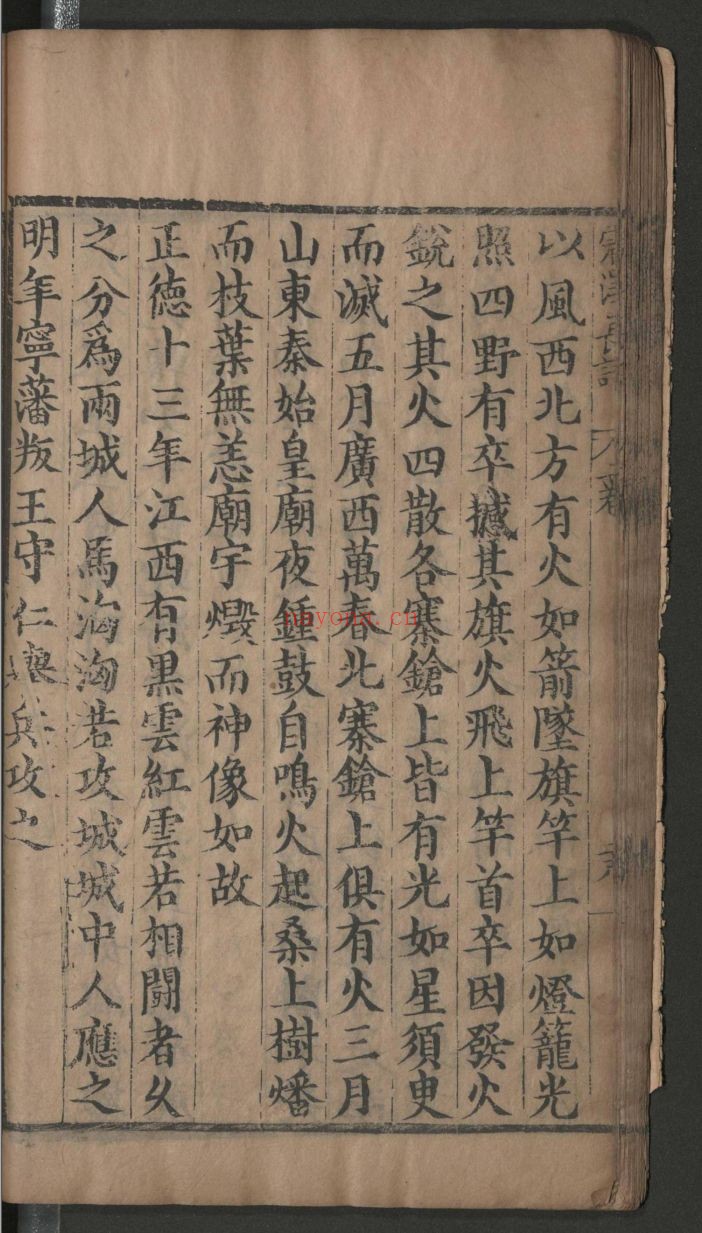 以風西北方有火如箭墜旗竿上如燈籠光
照四野有卒撼其旗火飛上竿首卒因發火
銃之其火四散各寨鎗上皆有光如星須臾
而滅五月廣西萬春北寨鎗上俱有火三月
山東秦始皇廟夜鍾鼓自鳴火起桑上樹燔
而枝葉無恙廟宇燬而神像如故
正德十三年江西有黑雲紅雲若相鬪者久
之分爲兩城人馬洶洶若攻城城中人應之
明年寧藩叛王守仁兵攻之